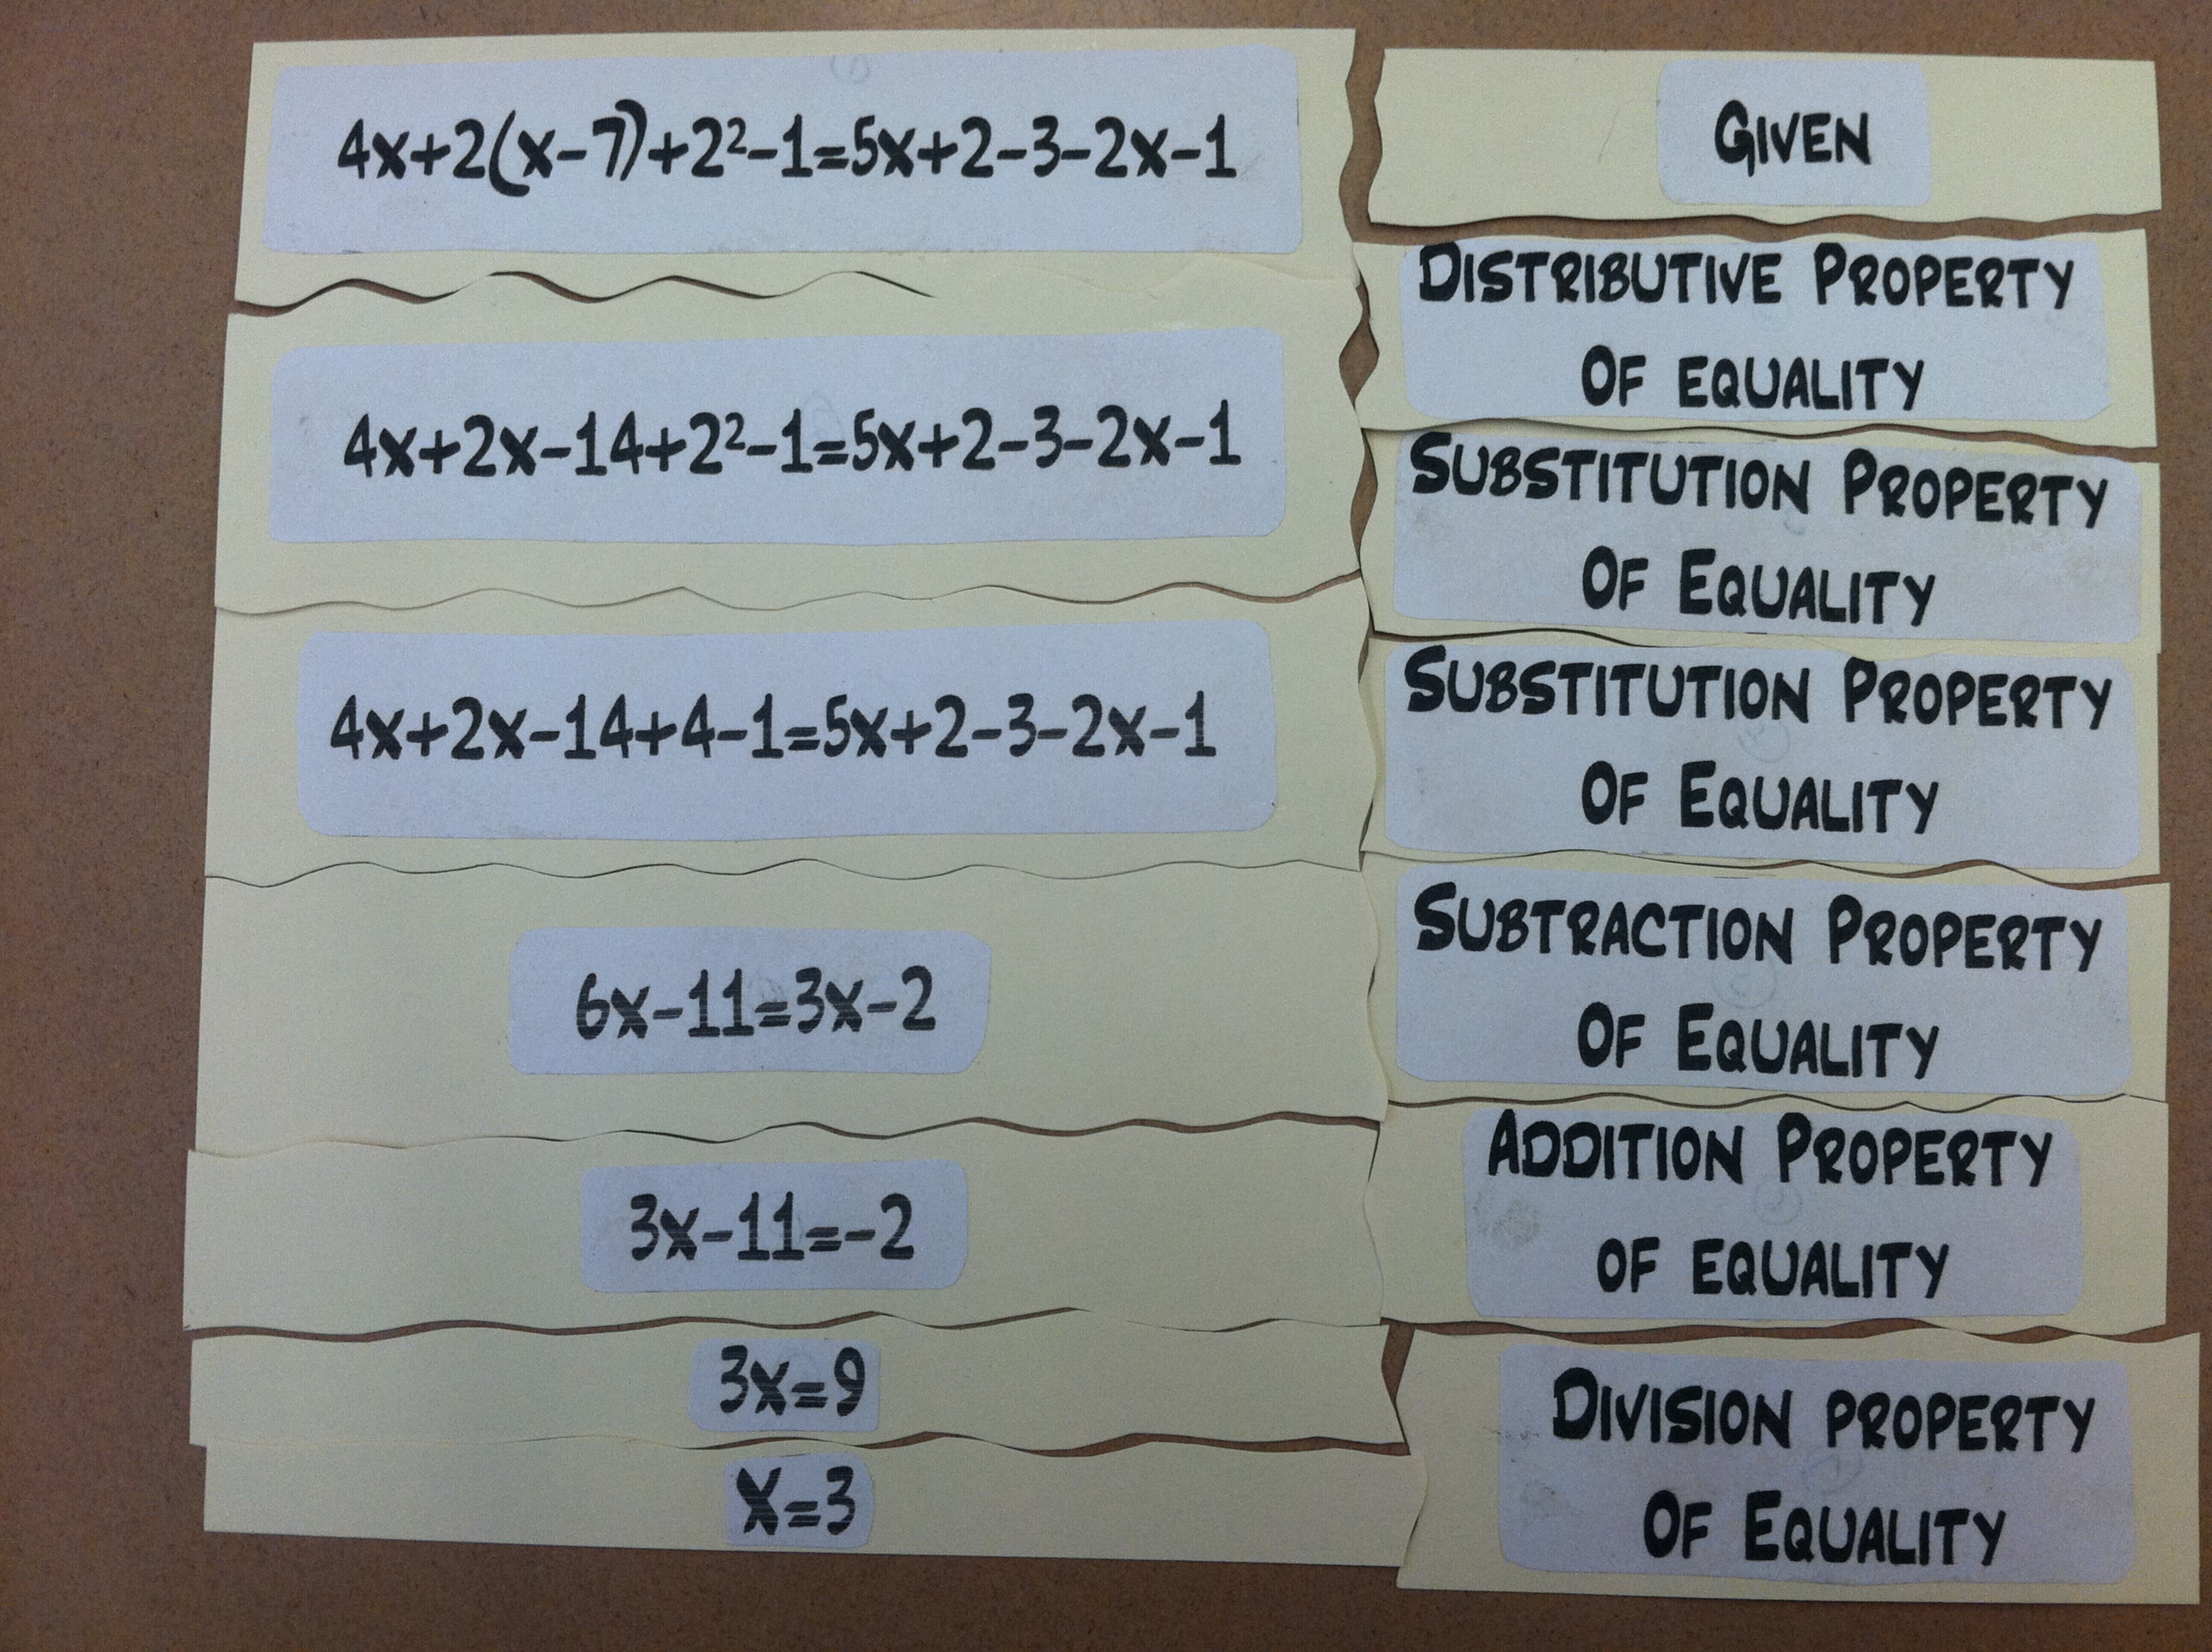 4x+2(x-7)+2²-1=5x+2-3-2x-1
GIVEN
4x+2x-14+2²-1=5x+2-3-2x-1
DISTRIBUTIVE PROPERTY
OF EQUALITY
4x+2x-14+4-1=5x+2-3-2x-1
SUBSTITUTION PROPERTY
OF EQUALITY
6x-11=3x-2
SUBSTITUTION PROPERTY
OF EQUALITY
3x-11=-2
SUBTRACTION PROPERTY
OF EQUALITY
3x=9
ADDITION PROPERTY
OF EQUALITY
x=3
DIVISION PROPERTY
OF EQUALITY